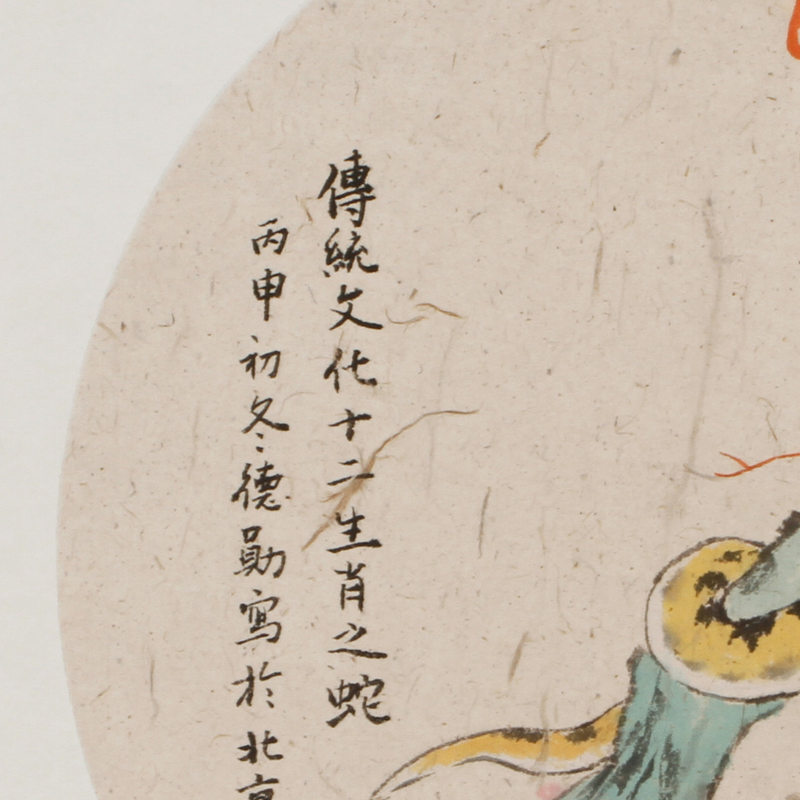 傳統文化十二生肖之蛇
丙申初冬德勛寫於北京